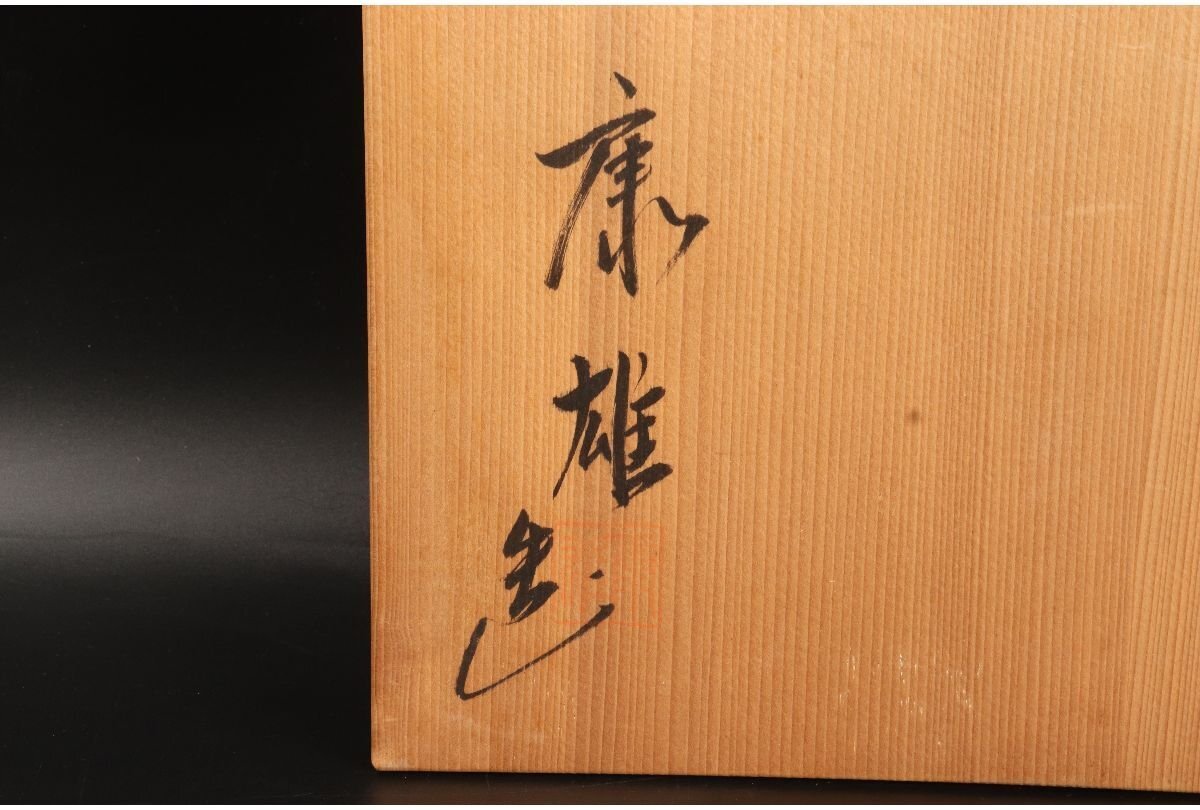 康雄造